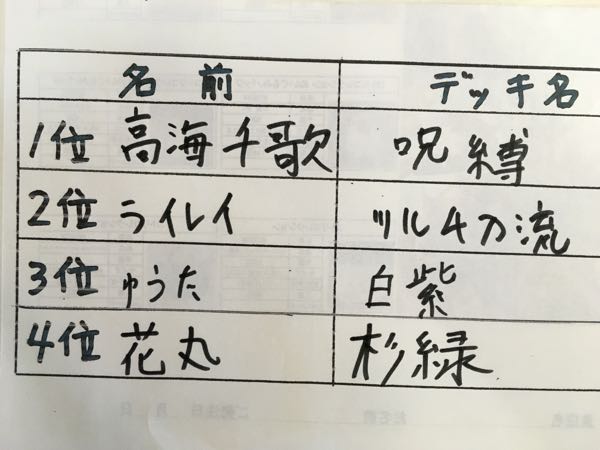 名前 デッキ名
1位 高海千歌 呪縛
2位 ライレイ ツルギ刀流
3位 ゆうた 白紫
4位 花丸 杉緑